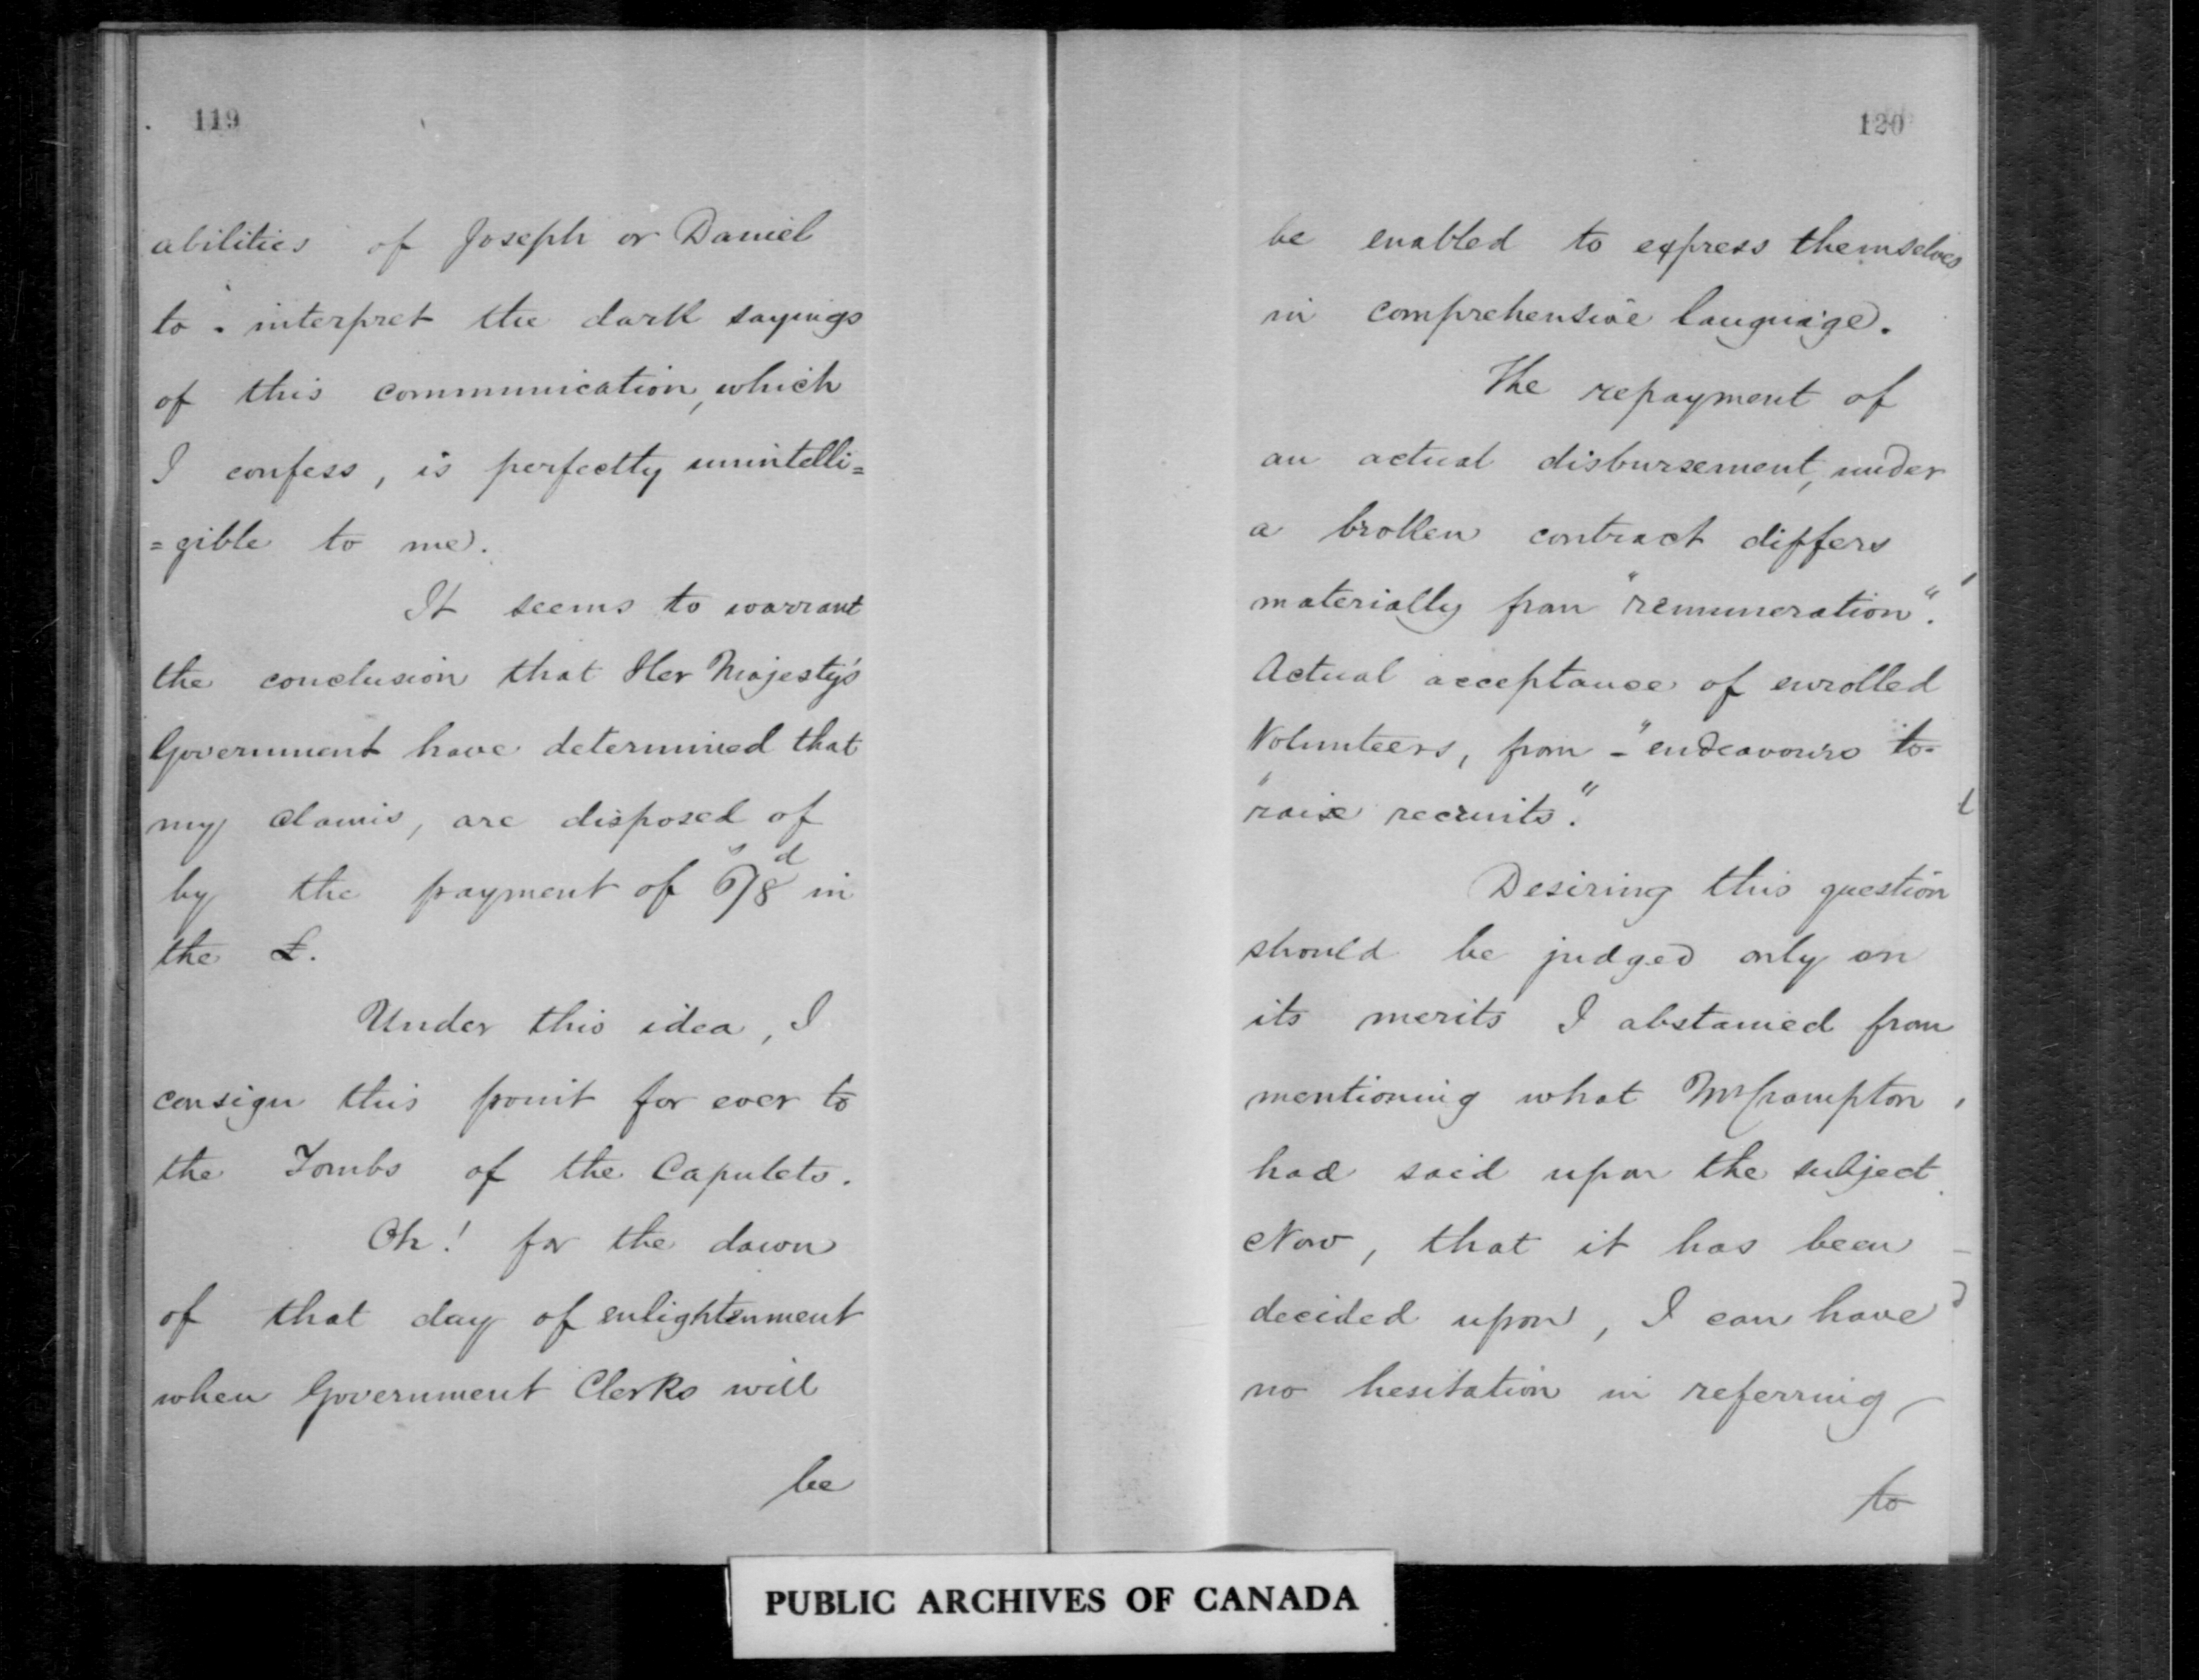 119
abilities of Joseph or Daniel
to interpret the dark sayings
of this communication, which
I confess, is perfectly unintelli=
=gible to me.
It seems to warrant
the conclusion that Her Majesty's
Government have determined that
my claims, are disposed of
by the payment of 6s/8d in
the £.
Under this idea, I
consign this point for ever to
the Tombs of the Capulets.
Oh! for the dawn
of that day of enlightenment
when Government Clerks will
be
120
be enabled to express themselves
in comprehensive language.
The repayment of
an actual disbursement, under
a broken contract differs
materially from "remuneration".
Actual acceptance of enrolled
Volunteers, from - "endeavours to
"raise recruits."
Desiring this question
should be judged only on
its merits I abstained from
mentioning what Mr Crampton
had said upon the subject.
Now, that it has been
decided upon, I can have
no hesitation in referring
to
PUBLIC ARCHIVES OF CANADA